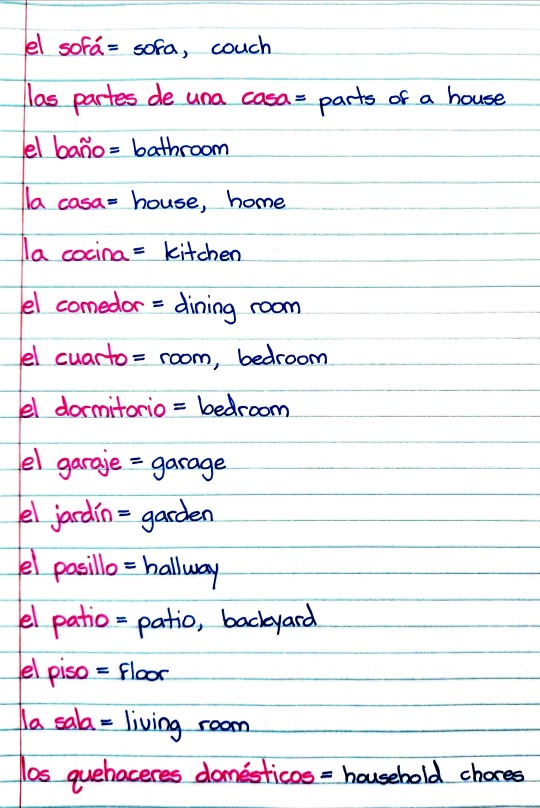 el sofá = sofa, couch
las partes de una casa = parts of a house
el baño = bathroom
la casa = house, home
la cocina = kitchen
el comedor = dining room
el cuarto = room, bedroom
el dormitorio = bedroom
el garaje = garage
el jardín = garden
el pasillo = hallway
el patio = patio, backyard
el piso = floor
la sala = living room
los quehaceres domésticos = household chores